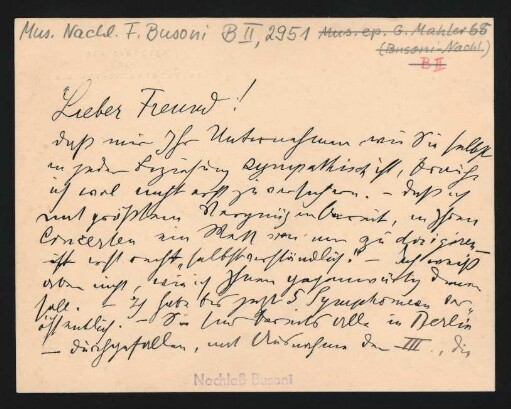 Mus. Nachl. F. Busoni B II, 2951 Mus. ep. G. Mahler 66
(Busoni-Nachl.)
B II
Lieber Freund!
Daß mir Ihr Unternehmen wie Sie selbst
in jeder Beziehung sympathisch ist, brauche
ich wol nicht erst zu versichern. – Daß ich
mit größtem Vergnügen bereit, in Ihren
Concerten ein Werk von mir zu dirigiren
ist erst recht „selbstverständlich“ – Ich weiß
aber nicht, wie ich Ihnen gegenwärtig dienen
soll. – Ich habe bis jetzt 5 Symphonien ver-
öffentlich. – Sie sind bereits alle in Berlin
– durchgefallen, mit Ausnahme der III., die
Nachlaß Busoni